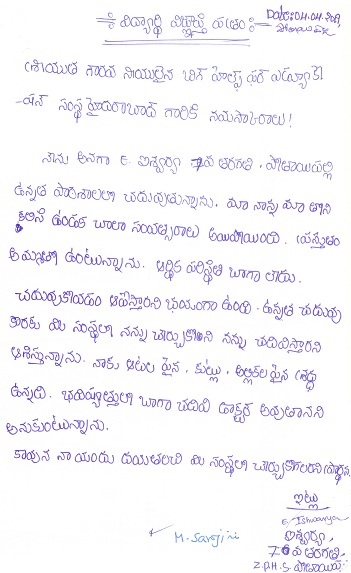 విద్యార్థి విజ్ఞప్తి పత్రం :-
Date: 04.04.
శ్రీయుత గౌరవ నీయులైన బిగ్ హెల్ప్ ఫర్ ఎడ్యూకే
-షన్ సంస్థ హైదరాబాద్ గారికి నమస్కారాలు!
నాను అనగా E. ఐశ్వర్యా 7వ తరగతి, పోతాయిపల్లి
ఉన్నత పాఠశాలలో చదువుతున్నాను. మా నాన్న మా
ఉండక చాలా సంవత్సరాలు అయిపోయింది. ప్రస్తుతం
అమ్మతో ఉంటున్నాను. ఆర్థిక పరిస్థితి బాగా లేదు.
చదువుకోవడం ఆపేస్తారని భయంగా ఉంది. ఉన్నత చదువు
కొరకు మీ సంస్థలో నన్ను చేర్చుకొని నన్ను చదివిస్తారని
ఆశిస్తున్నాను. నాకు ఆటల పైన, కుట్లు, అల్లికల పైన శ్రద్ధ
ఉన్నది. భవిష్యత్తులో బాగా చదివి డాక్టర్ అవుతానని
అనుకుంటున్నాను.
కావున నా యందు దయతలచి మీ సంస్థలో చేర్చుకోగలరని ప్రార్థన
ఇట్లు
E. Ishwarya
ఐశ్వర్యా,
7వ తరగతి
Z.P.H.S.
M. Saroji